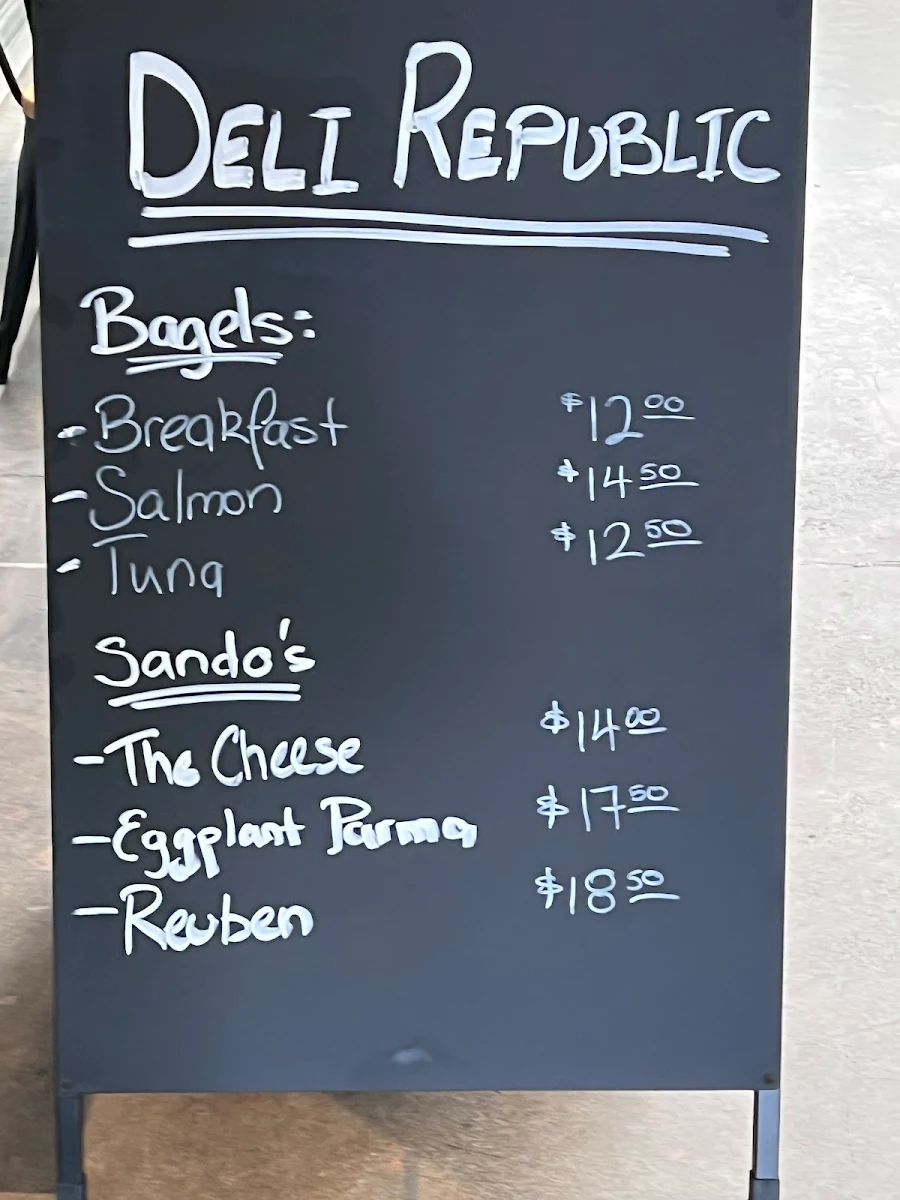 DELI REPUBLIC
Bagels:
- Breakfast $12.00
- Salmon $14.50
- Tuna $12.50
Sando's
- The Cheese $14.00
- Eggplant Parma $17.50
- Reuben $18.50